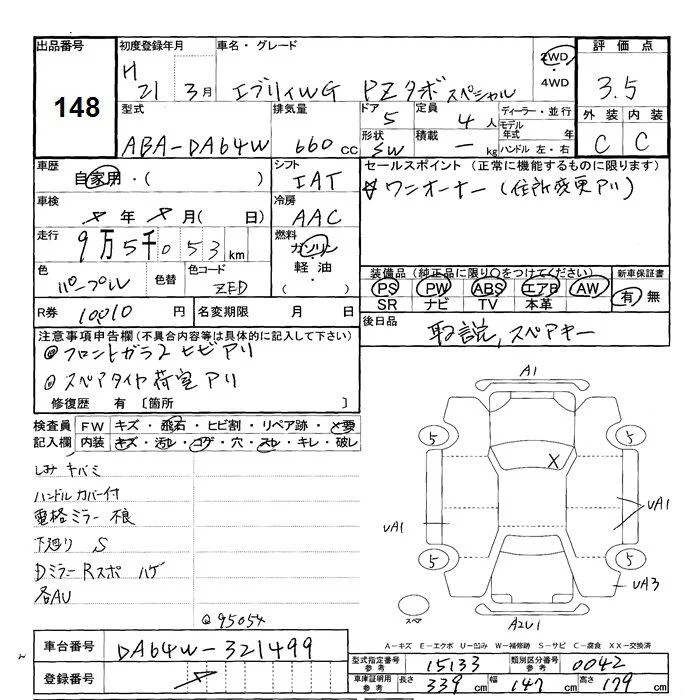 出品番号 初度登録年月 車名・グレード 2WD・4WD 評価点
148
H 21 3月 エブリィWG PZターボスペシャル 3.5
型式 排気量 ドア 5 定員 4人 ディーラー・並行 外装 内装
ABA-DA64W 660cc 形状 SW 積載 - kg モデル年式 年 ハンドル 左・右 C C
車歴 自家用・( ) シフト IAT セールスポイント(正常に機能するものに限ります)
ワンオーナー(住所変更アリ)
車検 年 月( 日) 冷房 AAC
走行 9万5千053km 燃料 ガソリン・軽油・( )
色 パープル 色替 色コード ZED
装備品(純正品に限り○をつけてください) 新車保証書
PS PW ABS エアB AW 有 無
SR ナビ TV 本革
R券 10010円 名変期限 月 日 後日品 取説,スペアキー
注意事項申告欄(不具合内容等は具体的に記入して下さい)
フロントガラス ヒビアリ
スペアタイヤ荷室アリ
修復歴 有 〔箇所 〕
検査員記入欄 FW キズ・飛石・ヒビ割・リペア跡・×要
内装 キズ・汚レ・コゲ・穴・スレ・キレ・破レ
しみ キバミ
ハンドルカバー付
電格ミラー 不良
下廻り S
Dミラー Rスポ ハゲ
各AU
Q95054
A1
5 5
X
UA1 UA1
5 5
UA3
スペア A2U1
A-キズ E-エクボ U-凹み W-補修跡 S-サビ C-腐食 XX-交換済
車台番号 DA64W-321499
登録番号
型式指定番号参考 15133 類別区分番号参考 0042
車庫証明用参考 長さ 339cm 幅 147cm 高さ 179cm